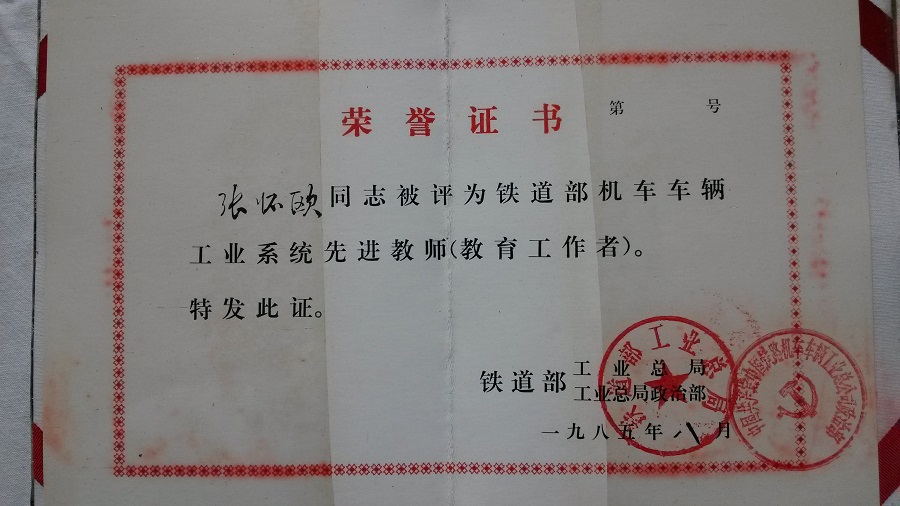 荣誉证书 第 号
张怀瓯同志被评为铁道部机车车辆
工业系统先进教师(教育工作者)。
特发此证。
铁道部 工业总局
工业总局政治部
一九八五年八月
铁道部工业总局